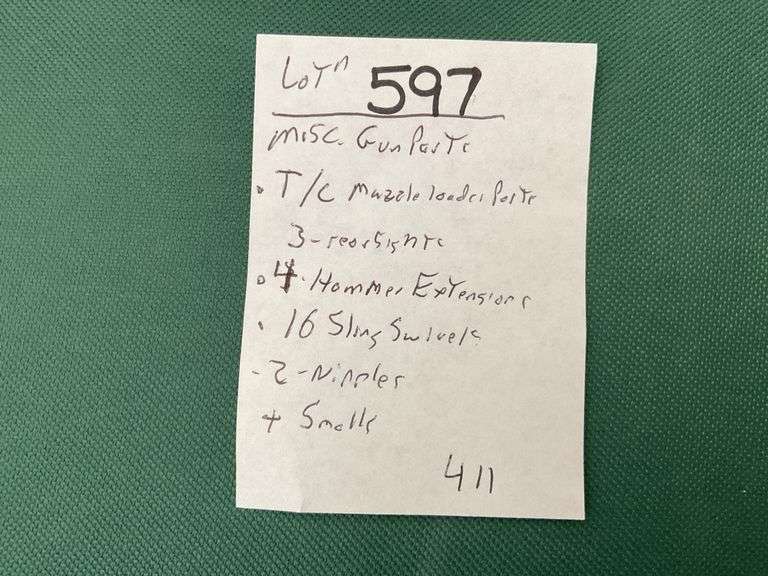 LoT n 597
MISC. Gun Parts
• T/C Muzzleloader Parts
3-rear sights
• 4. Hammer Extensions
• 16 Sling Swivels
- 2-Nipples
+ Smalls
411